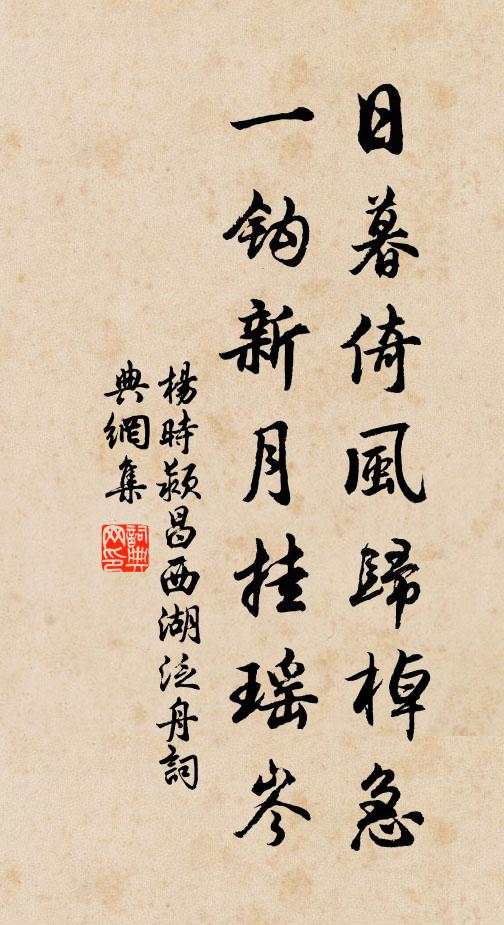 日暮倚風歸棹急
一鈎新月挂瑶岑
楊時潁昌西湖泛舟詞
典網集
詞典
网印